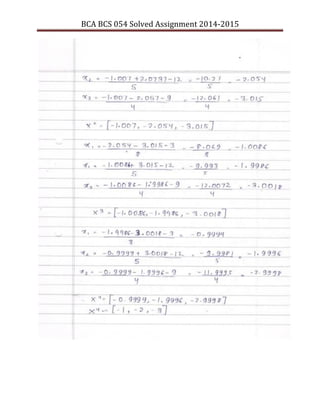 BCA BCS 054 Solved Assignment 2014-2015
x₂ = -1.007+2.0797-12 = -10.27 = -2.054
5 5
x₃ = -1.007-2.057-9 = -12.061 = -3.015
4 4
x'' = [-1.007, -2.054, -3.015]
x₁ = -2.054 - 3.015-3 = -8.069 = -1.0086
8 8
x₁ = -1.0086+ 3.015-12 = -9.993 = -1.9986
5 5
x₃ = -1.0086-1.9986-9 = -12.0072 = -3.0018
4 4
x³ = [-1.0086, -1.9986, -3.0018]
x₁ = -1.9986-3.0018-3 = -0.9999
8
x₂ = -0.9999+3.0018-12 = -9.9981 = -1.9996
5 5
x₃ = -0.9999-1.9996-9 = -11.9995 = -2.9998
4 4
x⁴ = [-0.9999, -1.9996, -2.9998]
x⁴ = [-1, -2, -3]